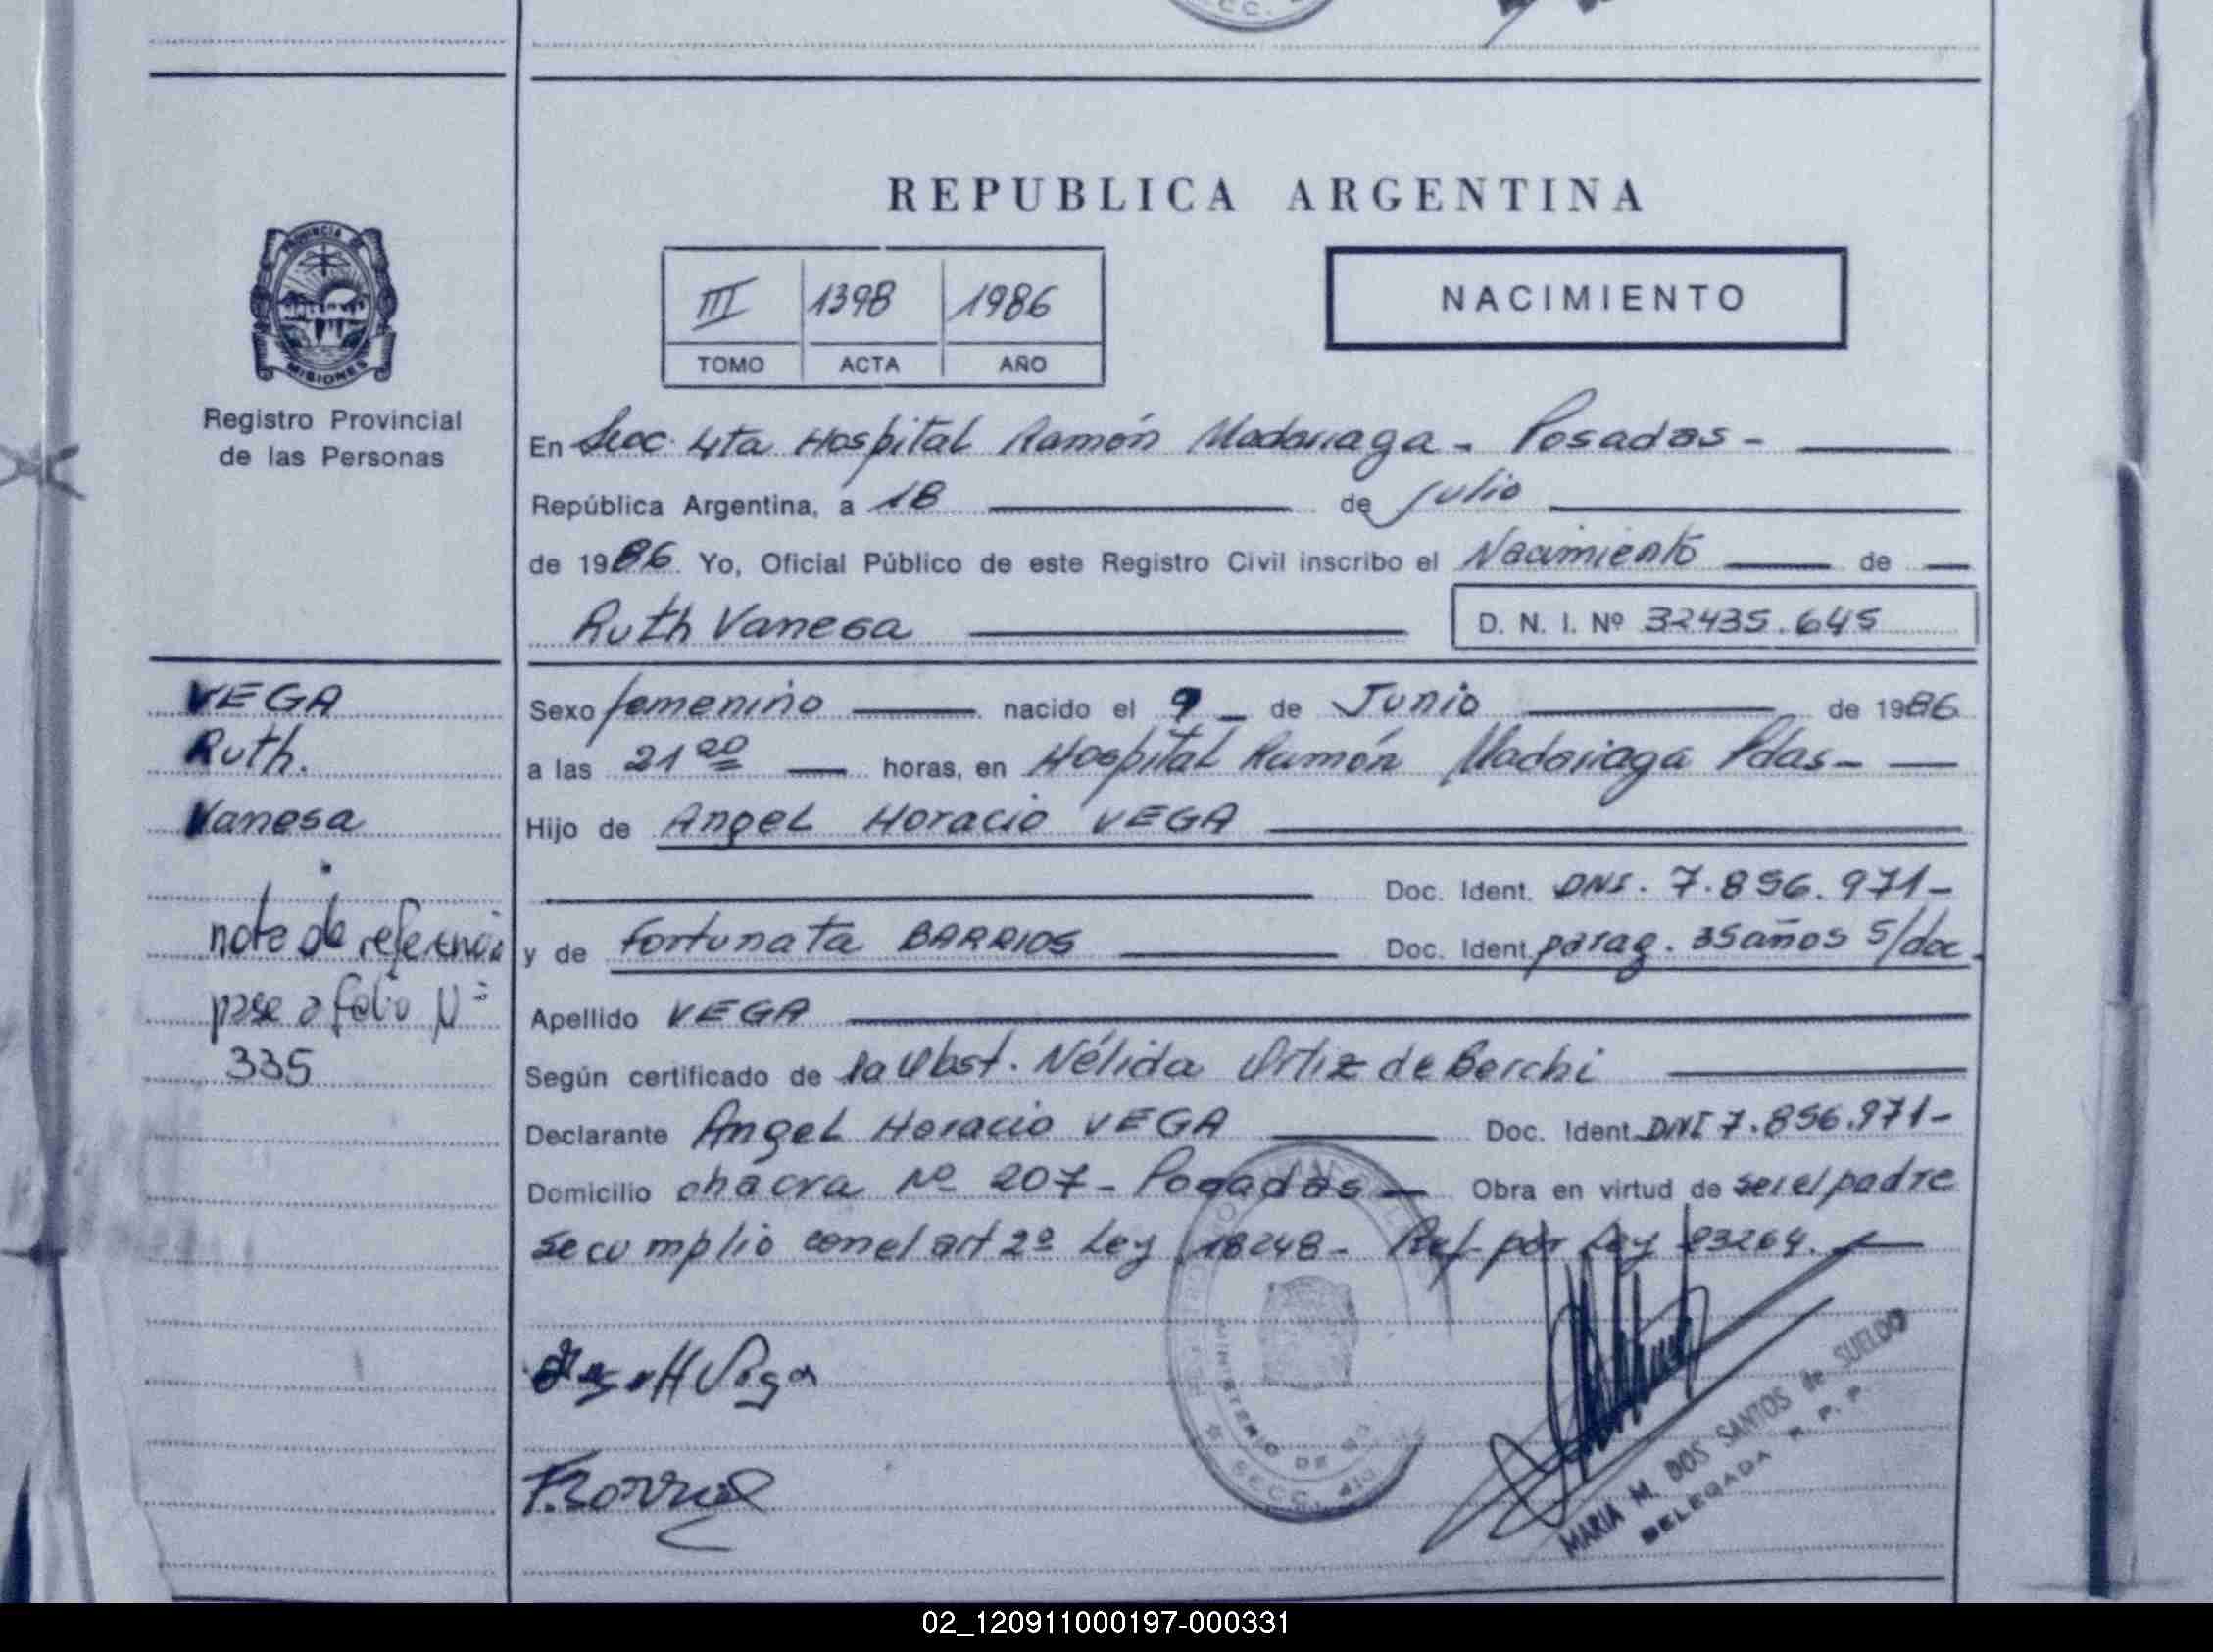 REPUBLICA ARGENTINA
PROVINCIA DE
MISIONES
Registro Provincial
de las Personas
III 1398 1986
TOMO ACTA AÑO
NACIMIENTO
En Secc. 4ta Hospital Ramón Madariaga - Posadas -
República Argentina, a 18 de Julio
de 1986 Yo, Oficial Público de este Registro Civil inscribo el Nacimiento de
Ruth Vanesa D. N. I. Nº 32435.645
VEGA
Ruth.
Vanesa
nota de referencia
pase a folio Nº
335
Sexo femenino nacido el 9 de Junio de 1986
a las 21 20 horas, en Hospital Ramón Madariaga Pdas-
Hijo de Angel Horacio VEGA
Doc. Ident. DNI. 7.856.971-
y de Fortunata BARRIOS Doc. Ident. parag. 35 años s/doc.
Apellido VEGA
Según certificado de la Obst. Nélida Ortiz de Berchi
Declarante Angel Horacio VEGA Doc. Ident. DNI 7.856.971-
Domicilio chacra Nº 207 - Posadas - Obra en virtud de ser el padre
se cumplio con el art 2º Ley 18248 - Ref. por Ley 23264.
MINISTERIO DE
MARIA M. DOS SANTOS de SUELDO
DELEGADA R. P. P.
02_120911000197-000331